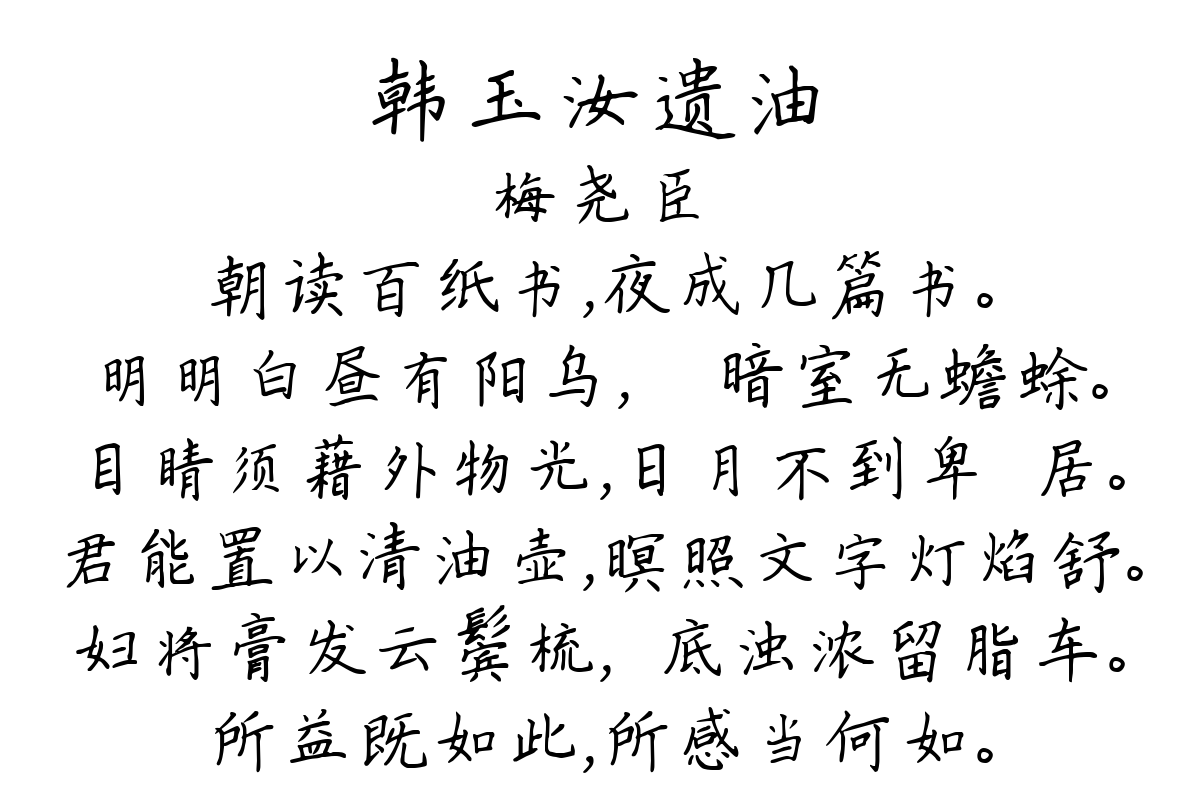 韩玉汝遗油
梅尧臣
朝读百纸书,夜成几篇书。
明明白昼有阳乌, 暗室无蟾蜍。
目睛须藉外物光,日月不到卑 居。
君能置以清油壶,暝照文字灯焰舒。
妇将膏发云鬓梳, 底浊浓留脂车。
所益既如此,所感当何如。